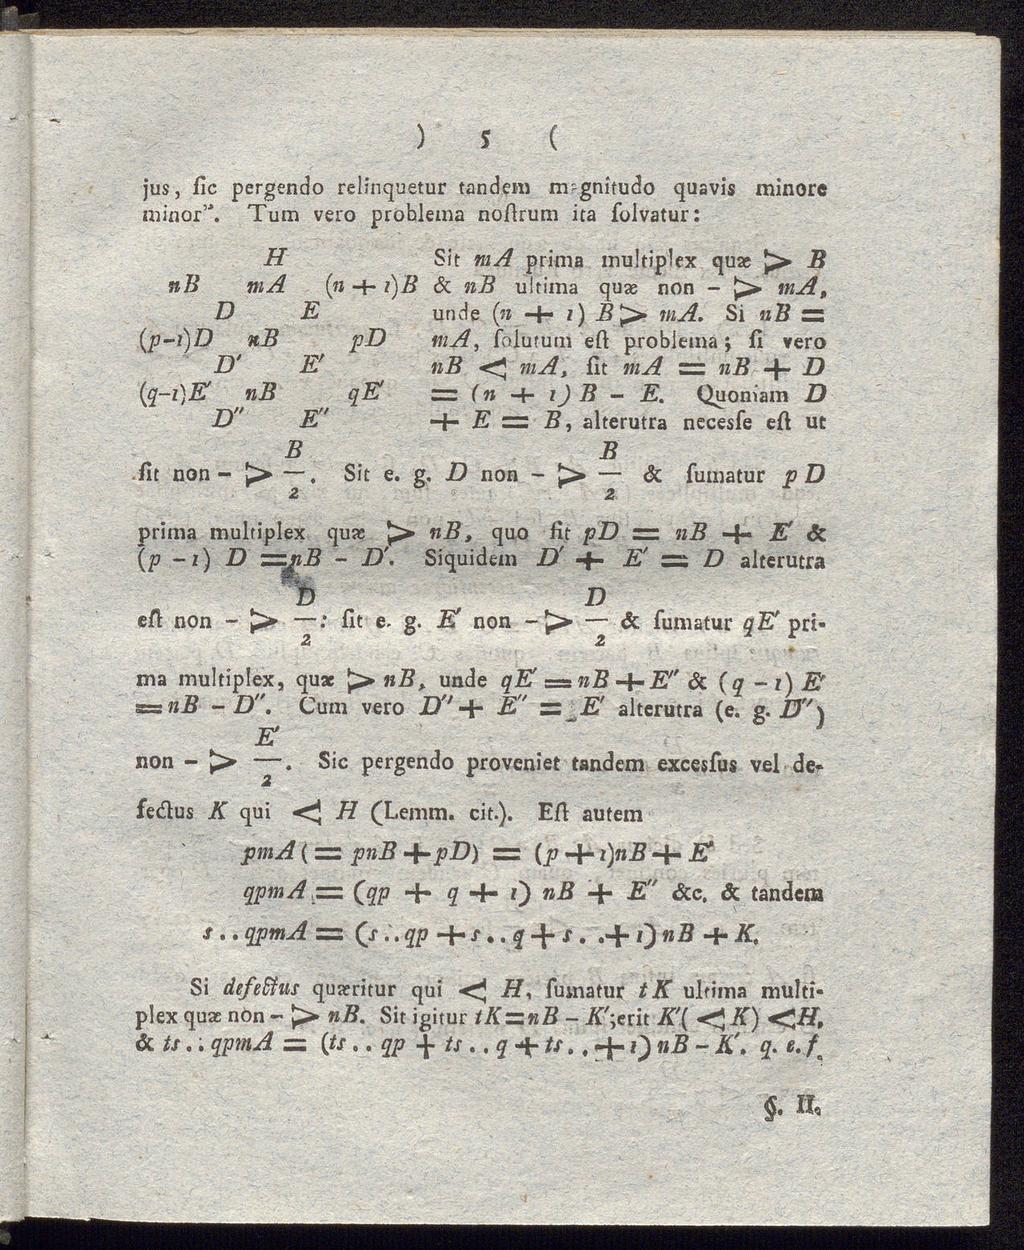 ) 5 (
jus, sic pergendo relinquetur tandem magnitudo quavis minore
minor". Tum vero problema nostrum ita solvatur:
H Sit mA prima multiplex quæ > B
nB mA (n + 1)B & nB ultima quæ non - > mA,
D E unde (n + 1) B > mA. Si nB =
(p-1)D nB pD mA, solutum est problema; si vero
D' E' nB < mA, sit mA = nB + D
(q-1)E' nB qE' = (n + 1) B - E. Quoniam D
D" E" + E = B, alterutra necesse est ut
sit non - > B/2. Sit e. g. D non - > B/2 & sumatur p D
prima multiplex quæ > nB, quo fit pD = nB + E' &
(p - 1) D = nB - D'. Siquidem D' + E' = D alterutra
est non - > D/2: sit e. g. E' non - > D/2 & sumatur qE' pri-
ma multiplex, quæ > nB, unde qE' = nB + E" & (q - 1) E'
= nB - D". Cum vero D" + E" = E' alterutra (e. g. D")
non - > E'/2. Sic pergendo proveniet tandem excessus vel de-
fectus K qui < H (Lemm. cit.). Est autem
pmA (= pnB + pD) = (p + 1)nB + E'
qpmA = (qp + q + 1) nB + E" &c. & tandem
s..qpmA = (s..qp + s..q + s. .+ 1) nB + K.
Si defectus quæritur qui < H, sumatur tK ultima multi-
plex quæ non - > nB. Sit igitur tK = nB - K'; erit K' ( < K) < H,
& ts..qpmA = (ts..qp + ts..q + ts..+ 1) nB - K'. q. e. f.
§. II.